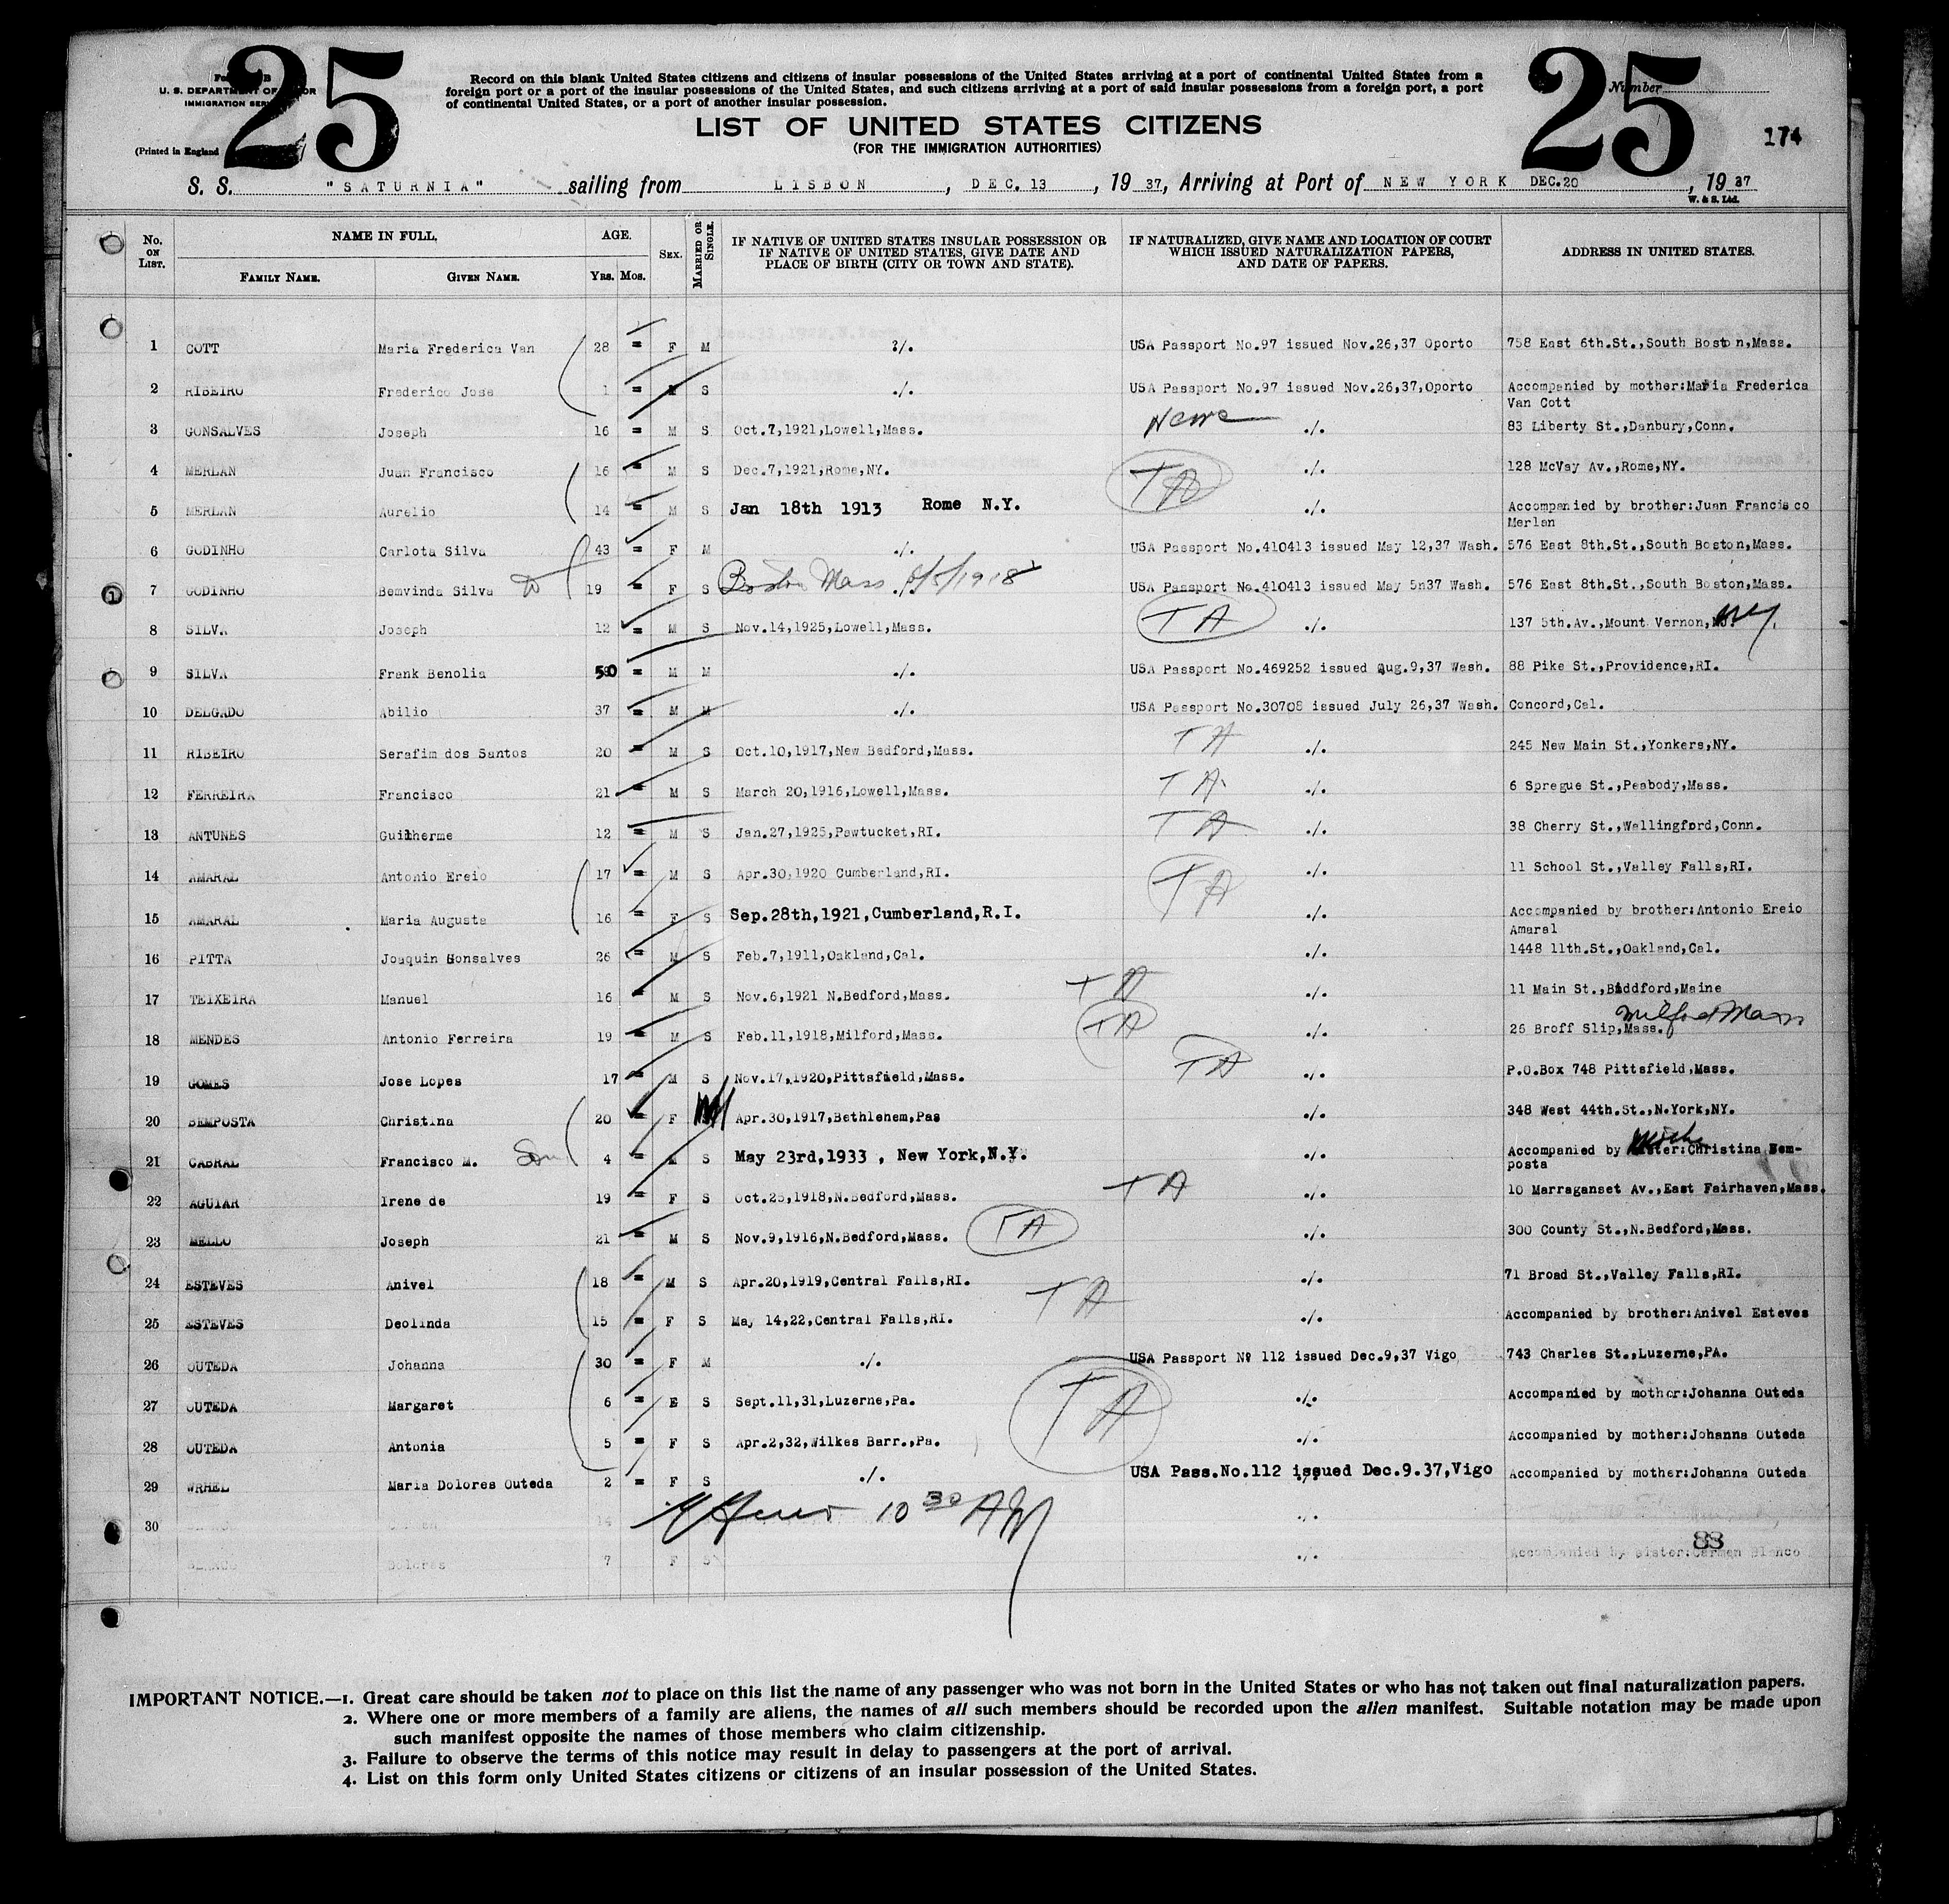 25
25
Form
U. S. DEPARTMENT OF LABOR
IMMIGRATION SERVICE
(Printed in England
Record on this blank United States citizens and citizens of insular possessions of the United States arriving at a port of continental United States from a
foreign port or a port of the insular possessions of the United States, and such citizens arriving at a port of said insular possessions from a foreign port, a port
of continental United States, or a port of another insular possession.
Number
174
LIST OF UNITED STATES CITIZENS
(FOR THE IMMIGRATION AUTHORITIES)
S. S. "SATURNIA" sailing from LISBON, DEC. 13, 19 37, Arriving at Port of NEW YORK DEC.20, 19 37
W. & S. Ltd.
No. ON LIST. NAME IN FULL. AGE. SEX. MARRIED OR SINGLE. IF NATIVE OF UNITED STATES INSULAR POSSESSION OR IF NATIVE OF UNITED STATES, GIVE DATE AND PLACE OF BIRTH (CITY OR TOWN AND STATE). IF NATURALIZED, GIVE NAME AND LOCATION OF COURT WHICH ISSUED NATURALIZATION PAPERS, AND DATE OF PAPERS. ADDRESS IN UNITED STATES.
FAMILY NAME. GIVEN NAME. YRS. MOS.
1 COTT Maria Frederica Van 28 = F M ?/. USA Passport No.97 issued Nov.26,37 Oporto 758 East 6th.St.,South Boston,Mass.
2 RIBEIRO Frederico Jose 1 = M S ./. USA Passport No.97 issued Nov.26,37,Oporto Accompanied by mother:Maria Frederica
Van Cott
3 GONSALVES Joseph 16 = M S Oct.7,1921,Lowell,Mass. ./. 83 Liberty St.,Danbury,Conn.
4 MERLAN Juan Francisco 16 = M S Dec.7,1921,Rome,NY. TA ./. 128 McVay Av.,Rome,NY.
5 MERLAN Aurelio 14 = M S Jan 18th 1913 Rome N.Y. ./. Accompanied by brother:Juan Francisco
Merlan
6 GODINHO Carlota Silva 43 = F M ./. USA Passport No.410413 issued May 12,37 Wash. 576 East 8th.St.,South Boston,Mass.
7 GODINHO Bemvinda Silva D 19 = F S Boston Mass 5/5/1918 ./. USA Passport No.410413 issued May 5n37 Wash. 576 East 8th.St.,South Boston,Mass.
8 SILVA Joseph 12 = M S Nov.14,1925,Lowell,Mass. TA ./. 137 5th.Av.,Mount Vernon, NY.
9 SILVA Frank Benolia 50 = M M ./. USA Passport No.469252 issued Aug.9,37 Wash. 88 Pike St.,Providence,RI.
10 DELGADO Abilio 37 = M M ./. USA Passport No.30708 issued July 26,37 Wash. Concord,Cal.
11 RIBEIRO Serafim dos Santos 20 = M S Oct.10,1917,New Bedford,Mass. TA ./. 245 New Main St.,Yonkers,NY.
12 FERREIRA Francisco 21 = M S March 20,1916,Lowell,Mass. TA. ./. 6 Spregue St.,Peabody,Mass.
13 ANTUNES Guilherme 12 = M S Jan.27,1925,Pawtucket,RI. TA ./. 38 Cherry St.,Wallingford,Conn.
14 AMARAL Antonio Ereio 17 = M S Apr.30,1920 Cumberland,RI. TA ./. 11 School St.,Valley Falls,RI.
15 AMARAL Maria Augusta 16 = F S Sep.28th,1921,Cumberland,R.I. ./. Accompanied by brother:Antonio Ereio
Amaral
16 PITTA Joaquin Gonsalves 26 = M S Feb.7,1911,Oakland,Cal. ./. 1448 11th.St.,Oakland,Cal.
17 TEIXEIRA Manuel 16 = M S Nov.6,1921 N.Bedford,Mass. TA ./. 11 Main St.,Biddford,Maine
18 MENDES Antonio Ferreira 19 = M S Feb.11,1918,Milford,Mass. TA ./. 26 Broff Slip,Mass. Milford Mass
19 GOMES Jose Lopes 17 = M S Nov.17,1920,Pittsfield,Mass. TA ./. P.O.Box 748 Pittsfield,Mass.
20 BEMPOSTA Christina 20 = F M Apr.30,1917,Bethlehem,Pas ./. 348 West 44th.St.,N.York,NY.
21 CABRAL Francisco M. Son 4 = M S May 23rd,1933 , New York,N.Y. ./. Accompanied by Mother:Christina Bem-
posta
22 AGUIAR Irene de 19 = F S Oct.25,1918,N.Bedford,Mass. TA ./. 10 Marraganset Av.,East Fairhaven,Mass.
23 MELLO Joseph 21 = M S Nov.9,1916,N.Bedford,Mass. TA ./. 300 County St.,N.Bedford,Mass.
24 ESTEVES Anivel 18 = M S Apr.20,1919,Central Falls,RI. TA ./. 71 Broad St.,Valley Falls,RI.
25 ESTEVES Deolinda 15 = F S May 14,22,Central Falls,RI. ./. Accompanied by brother:Anivel Esteves
26 OUTEDA Johanna 30 = F M ./. USA Passport Nº 112 issued Dec.9,37 Vigo 743 Charles St.,Luzerne,PA.
27 OUTEDA Margaret 6 = F S Sept.11,31,Luzerne,Pa. TA ./. Accompanied by mother:Johanna Outeda
28 OUTEDA Antonia 5 = F S Apr.2,32,Wilkes Barr.,Pa. ./. Accompanied by mother:Johanna Outeda
29 WRHEL Maria Dolores Outeda 2 = F S ./. USA Pass.No.112 issued Dec.9.37,Vigo Accompanied by mother:Johanna Outeda
30 10 30 AM ./.
83
BLANCO Dolores 7 F S ./. Accompanied by sister:Carmen Blanco
IMPORTANT NOTICE.—1. Great care should be taken not to place on this list the name of any passenger who was not born in the United States or who has not taken out final naturalization papers.
2. Where one or more members of a family are aliens, the names of all such members should be recorded upon the alien manifest. Suitable notation may be made upon
such manifest opposite the names of those members who claim citizenship.
3. Failure to observe the terms of this notice may result in delay to passengers at the port of arrival.
4. List on this form only United States citizens or citizens of an insular possession of the United States.